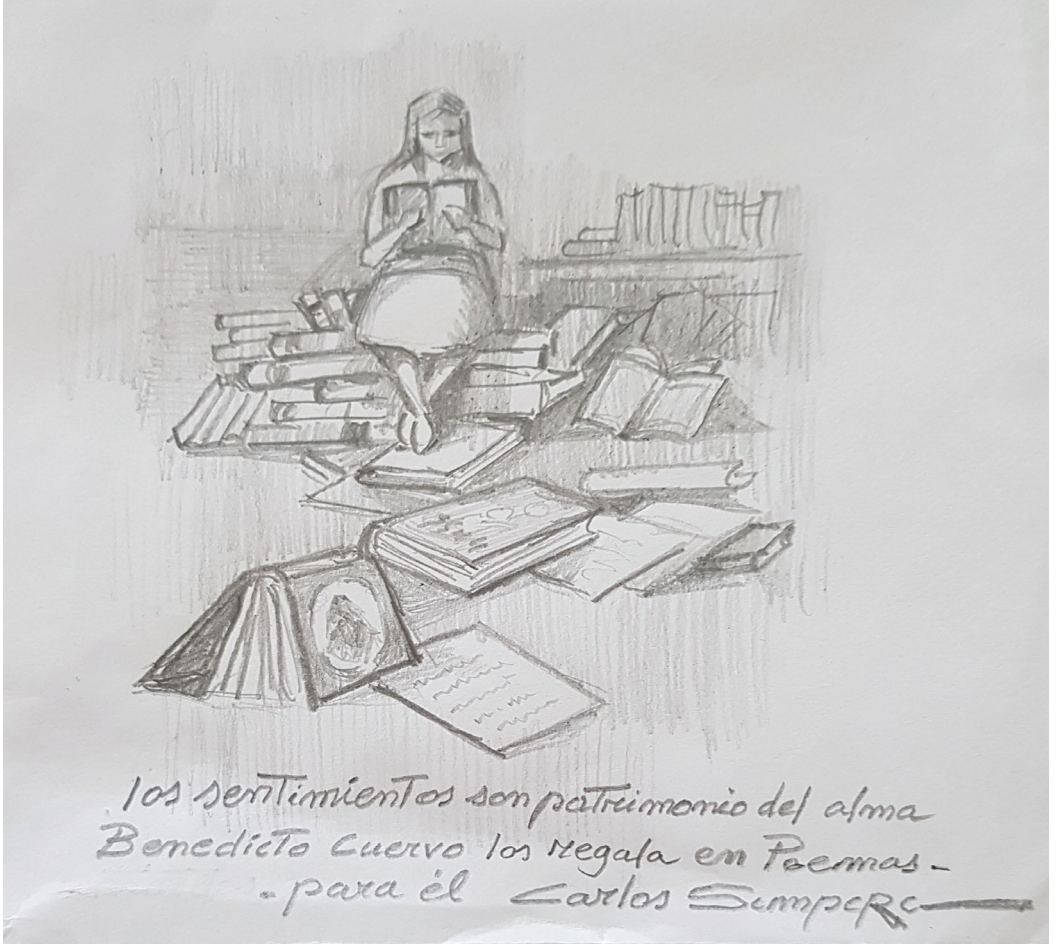 los sentimientos son patrimonio del alma
Benedicto Cuervo los regala en Poemas-
-para él Carlos